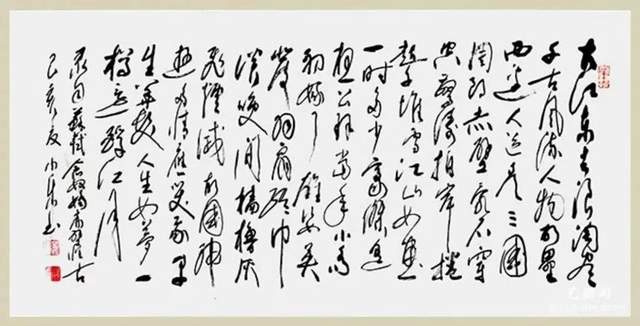 大江东去浪淘尽
千古风流人物故垒
西边人道是三国
周郎赤壁乱石穿
空惊涛拍岸卷
起千堆雪江山如画
一时多少豪杰遥
想公瑾当年小乔
初嫁了雄姿英
发羽扇纶巾
谈笑间樯橹灰
飞烟灭故国神
游多情应笑我早
生华发人生如梦一
樽还酹江月
苏轼念奴娇赤壁怀古
己亥夏小东书